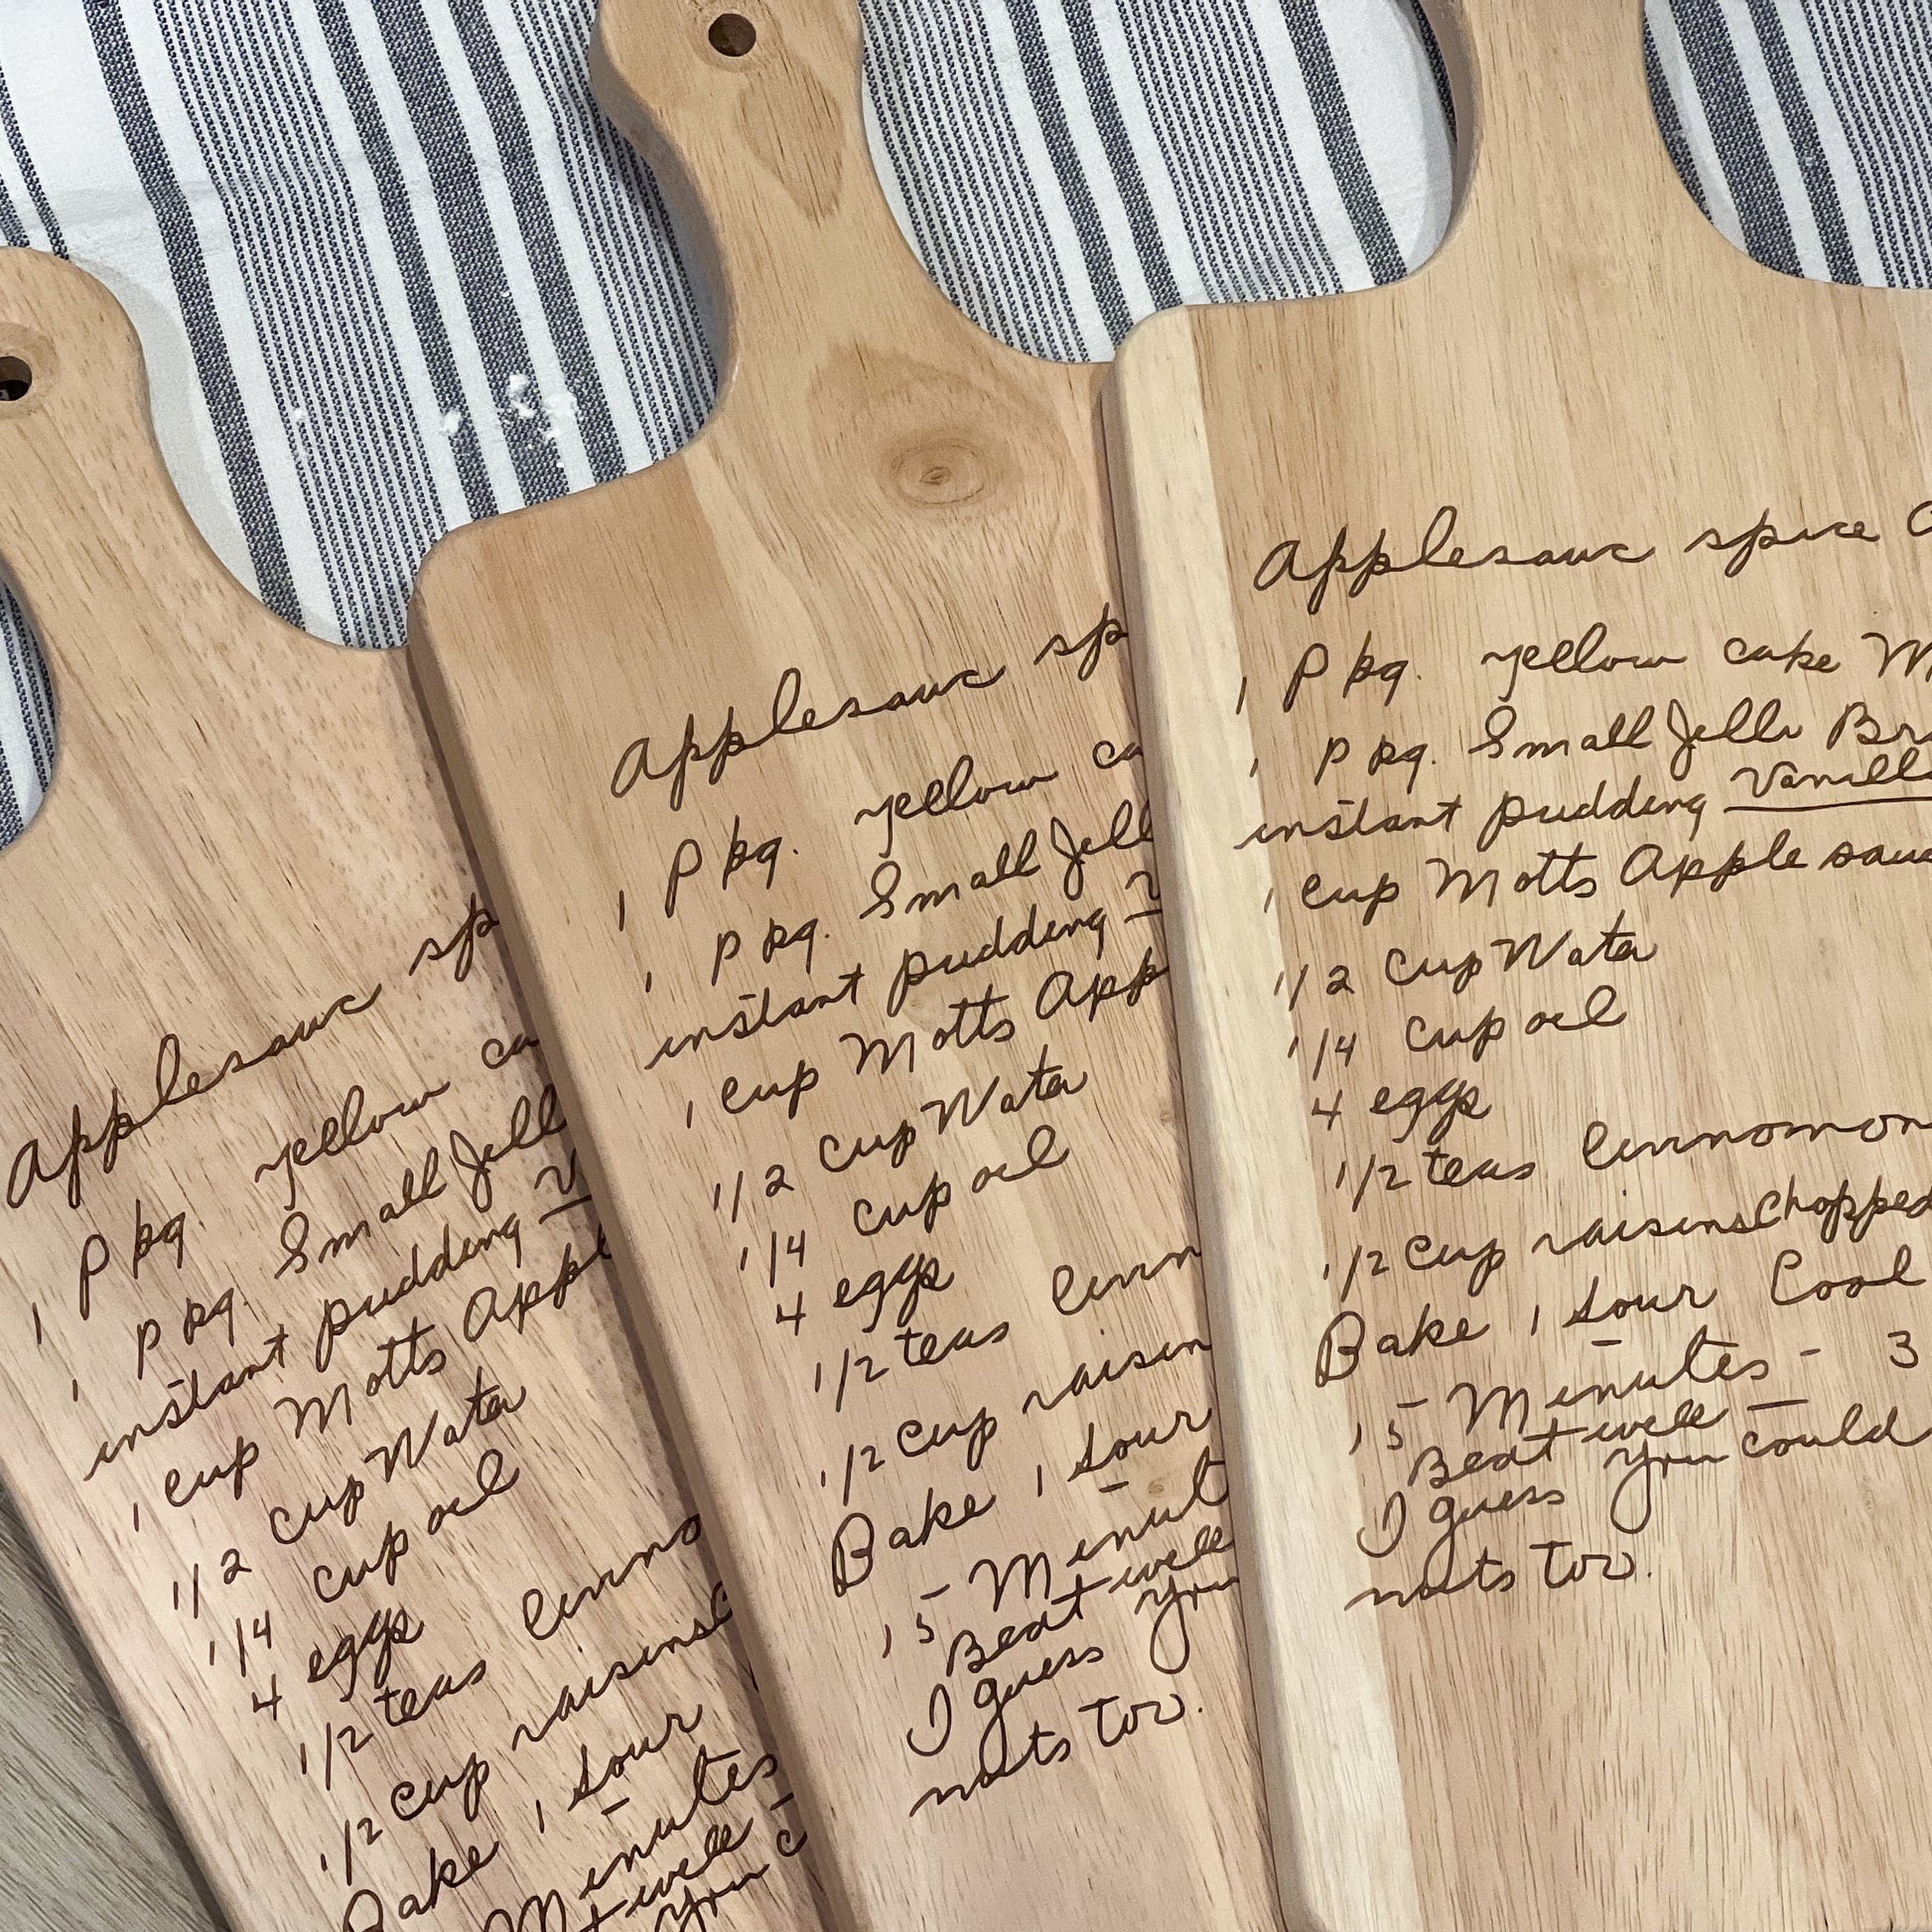 Applesauc sp
1 Ppkg. yellow ca
1 Ppkg. Small Jell
instant pudding V
1 cup Motts Appl
1/2 cup Wata
1/4 cup oil
4 eggs
1/2 teas Cinno
1/2 cup raisinsC
Bake 1 hour
Minutes
t well
you c
Applesauc sp
1 Ppkg. yellow ca
1 Ppkg. Small Jell
instant pudding V
1 cup Motts App
1/2 cup Wata
1/4 cup oil
4 eggs
1/2 teas Cinn
1/2 cup raisin
Bake 1 hour
15 - Minut
Beat well
I guess you
nuts too.
Applesauc spice C
1 Ppkg. yellow cake M
1 Ppkg. Small Jello Br
instant pudding Vanill
1 cup Motts Apple sau
1/2 cup Wata
1/4 cup oil
4 eggs
1/2 teas Cinnomon
1/2 cup raisinsChopped
Bake 1 hour Cool
15 - Minutes - 3
Beat well
I guess you could
nuts too.